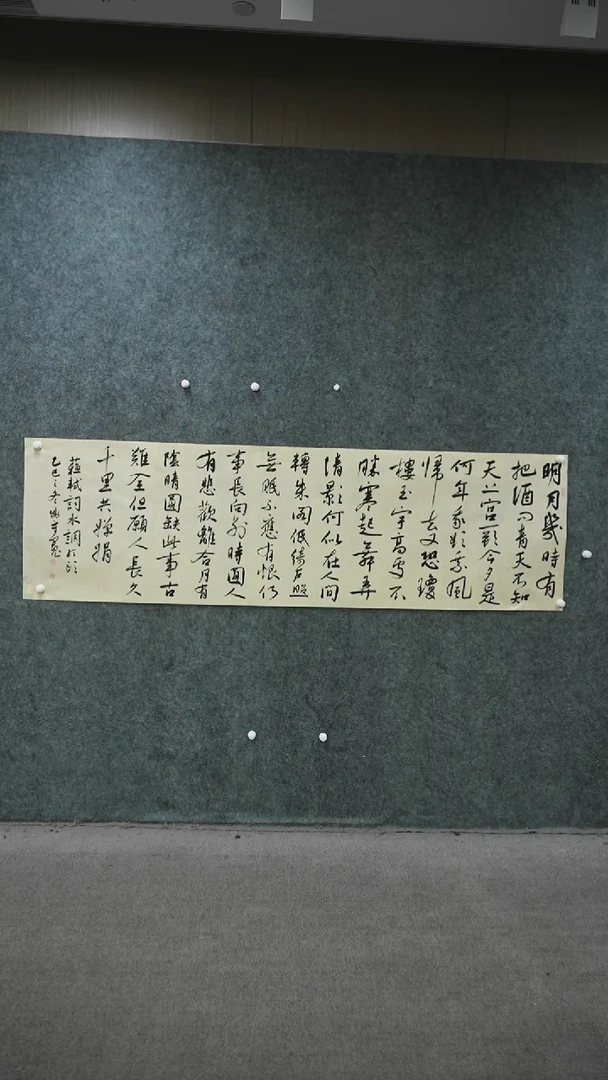 明月幾時有
把酒问青天不知
天上宫闕今夕是
何年我欲乘風
歸去又恐瓊
樓玉宇高處不
勝寒起舞弄
清影何似在人間
轉朱閣低綺户照
無眠不應有恨何
事長向別時圓人
有悲歡離合月有
陰晴圓缺此事古
難全但願人長久
千里共嬋娟
蘇軾詞水調歌頭
乙巳之冬